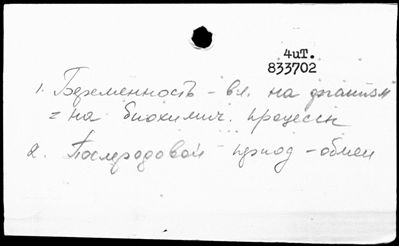 4иТ.
833702
1. Беременность - вл. на организм
= на биохимич. процессы
2. Послеродовой период - обмен